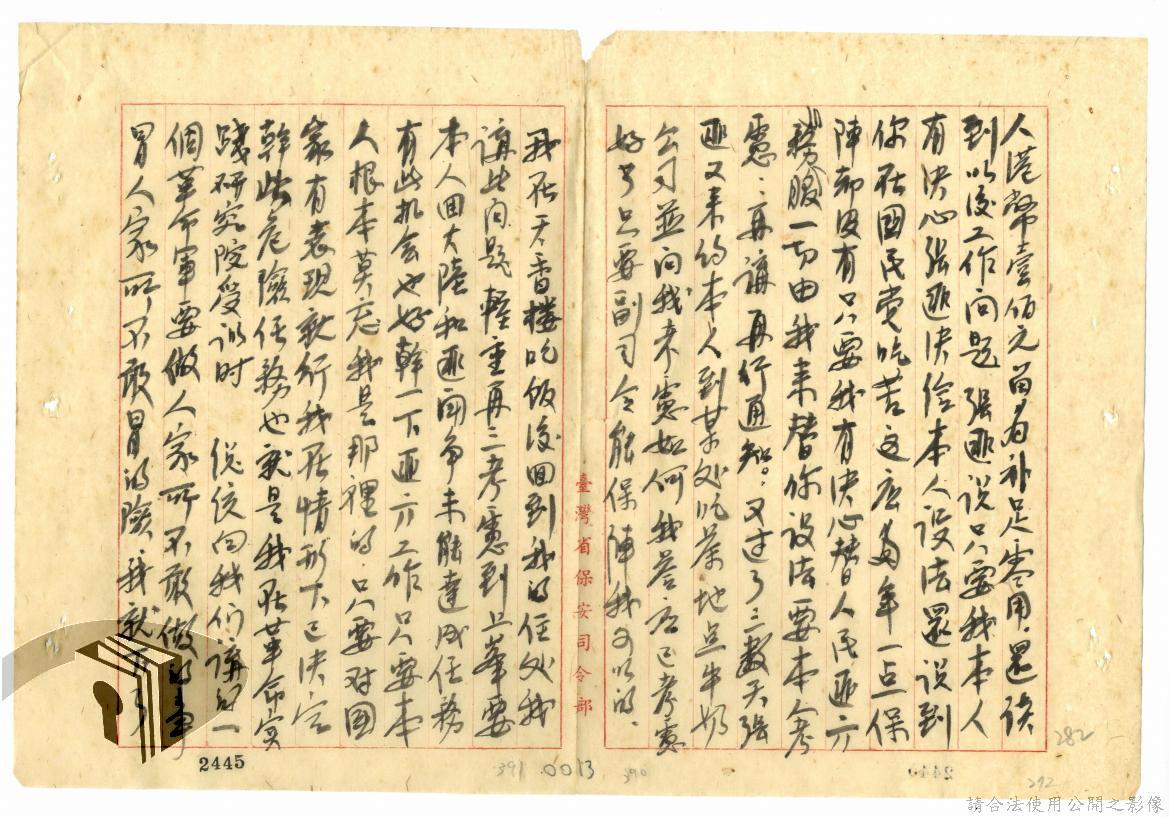 人港幣壹佰元留為补足零用還談
到以後工作问題 張匪说只要我本人
有决心張匪决给本人設法還说到
你在國民党吃苦这应多年一点保
陣却没有只要我有决心替人民匪方
服務一切由我来替你设法要本人考
慮、再講再行通知。又过了三数天張
匪又来约本人到某处吃茶地点牛奶
公司並问我考慮如何我答应已考慮
好了只要副司令能保陣我可以的、
臺灣省保安司令部
我在天香楼吃饭後回到我的住处我
講此问题輕重再三考慮到上峯要
本人回大陸和匪闘争未能達成任務
有此机会也好幹一下匪方工作只要本
人根本莫忘我是那裡的只要对國
家有表现就行我在情形下已决定
幹此危險任務也就是我在革命实
践研究院受训时 總統向我们講的一
個革命軍要做人家所不敢做的事
冒人家所不敢冒的險我就
2445
391
0013
390
282
292
請合法使用公開之影像